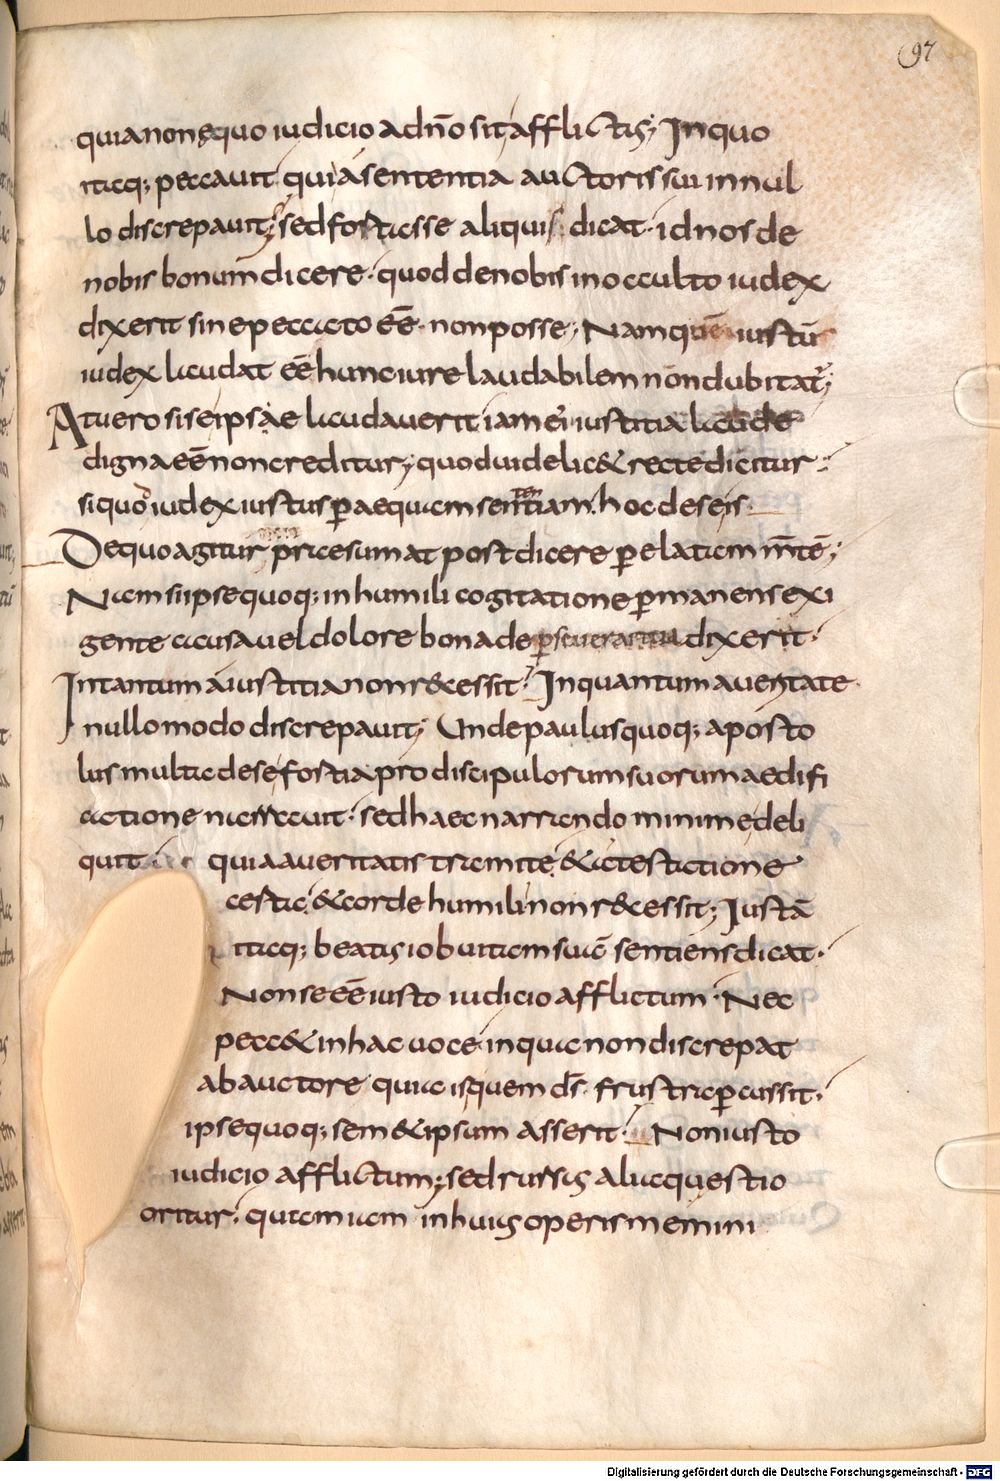 97
quia non ęquo iudicio a dn̄o sit afflictus; In quo
itaq; peccauit quia sententia auctoris sui in nul
lo discrepauit; sed fortasse aliquis dicat · id nos de
nobis bonum dicere · quod de nobis in occulto iudex
dixerit sine peccato eē · non posse; Nam quē iustus
iudex laudat eē hunc iure laudabilem non dubitat͛;
At uero si se ipsą̄e laudauerit iam ei iustitia laude
digna eē non creditur; quod uidelic& recte dicitur ·
si quod iudex iustus ꝑ aequam sententiam · hoc de se is ·
De quo agitur praesumat post dicere ꝑ elatam m̄tē;
Nam si ipse quoq; in humili cogitatione ꝑmanens exi
gente causa uel dolore bona de ꝑseuerantia dixerit ·
In tantum a iustitia non r&essit · In quantum a ueritate ·
nullo modo discrepauit; Unde paulus quoq; aposto
lus multa de se fortia pro discipulorum suorum aedifi
catione narrauit · sed haec narrando minime deli
quit · quia a ueritatis tramite · & a testatione
certa · & corde humili non r&essit; Iusta
itaq; beatus iob uitam suā sentiens dicat ·
Non se eē iusto iudicio afflictum · Nec
pecc& in hac uoce · in qua non discrepat
ab auctore quia is quem d͞s · frustra ꝑcussit ·
ipse quoq; sem& ipsum asserit · Non iusto
iudicio afflictum; sed rursus alia questio
oritur · quam iam in huius operis memini
Digitalisierung gefördert durch die Deutsche Forschungsgemeinschaft - DFG